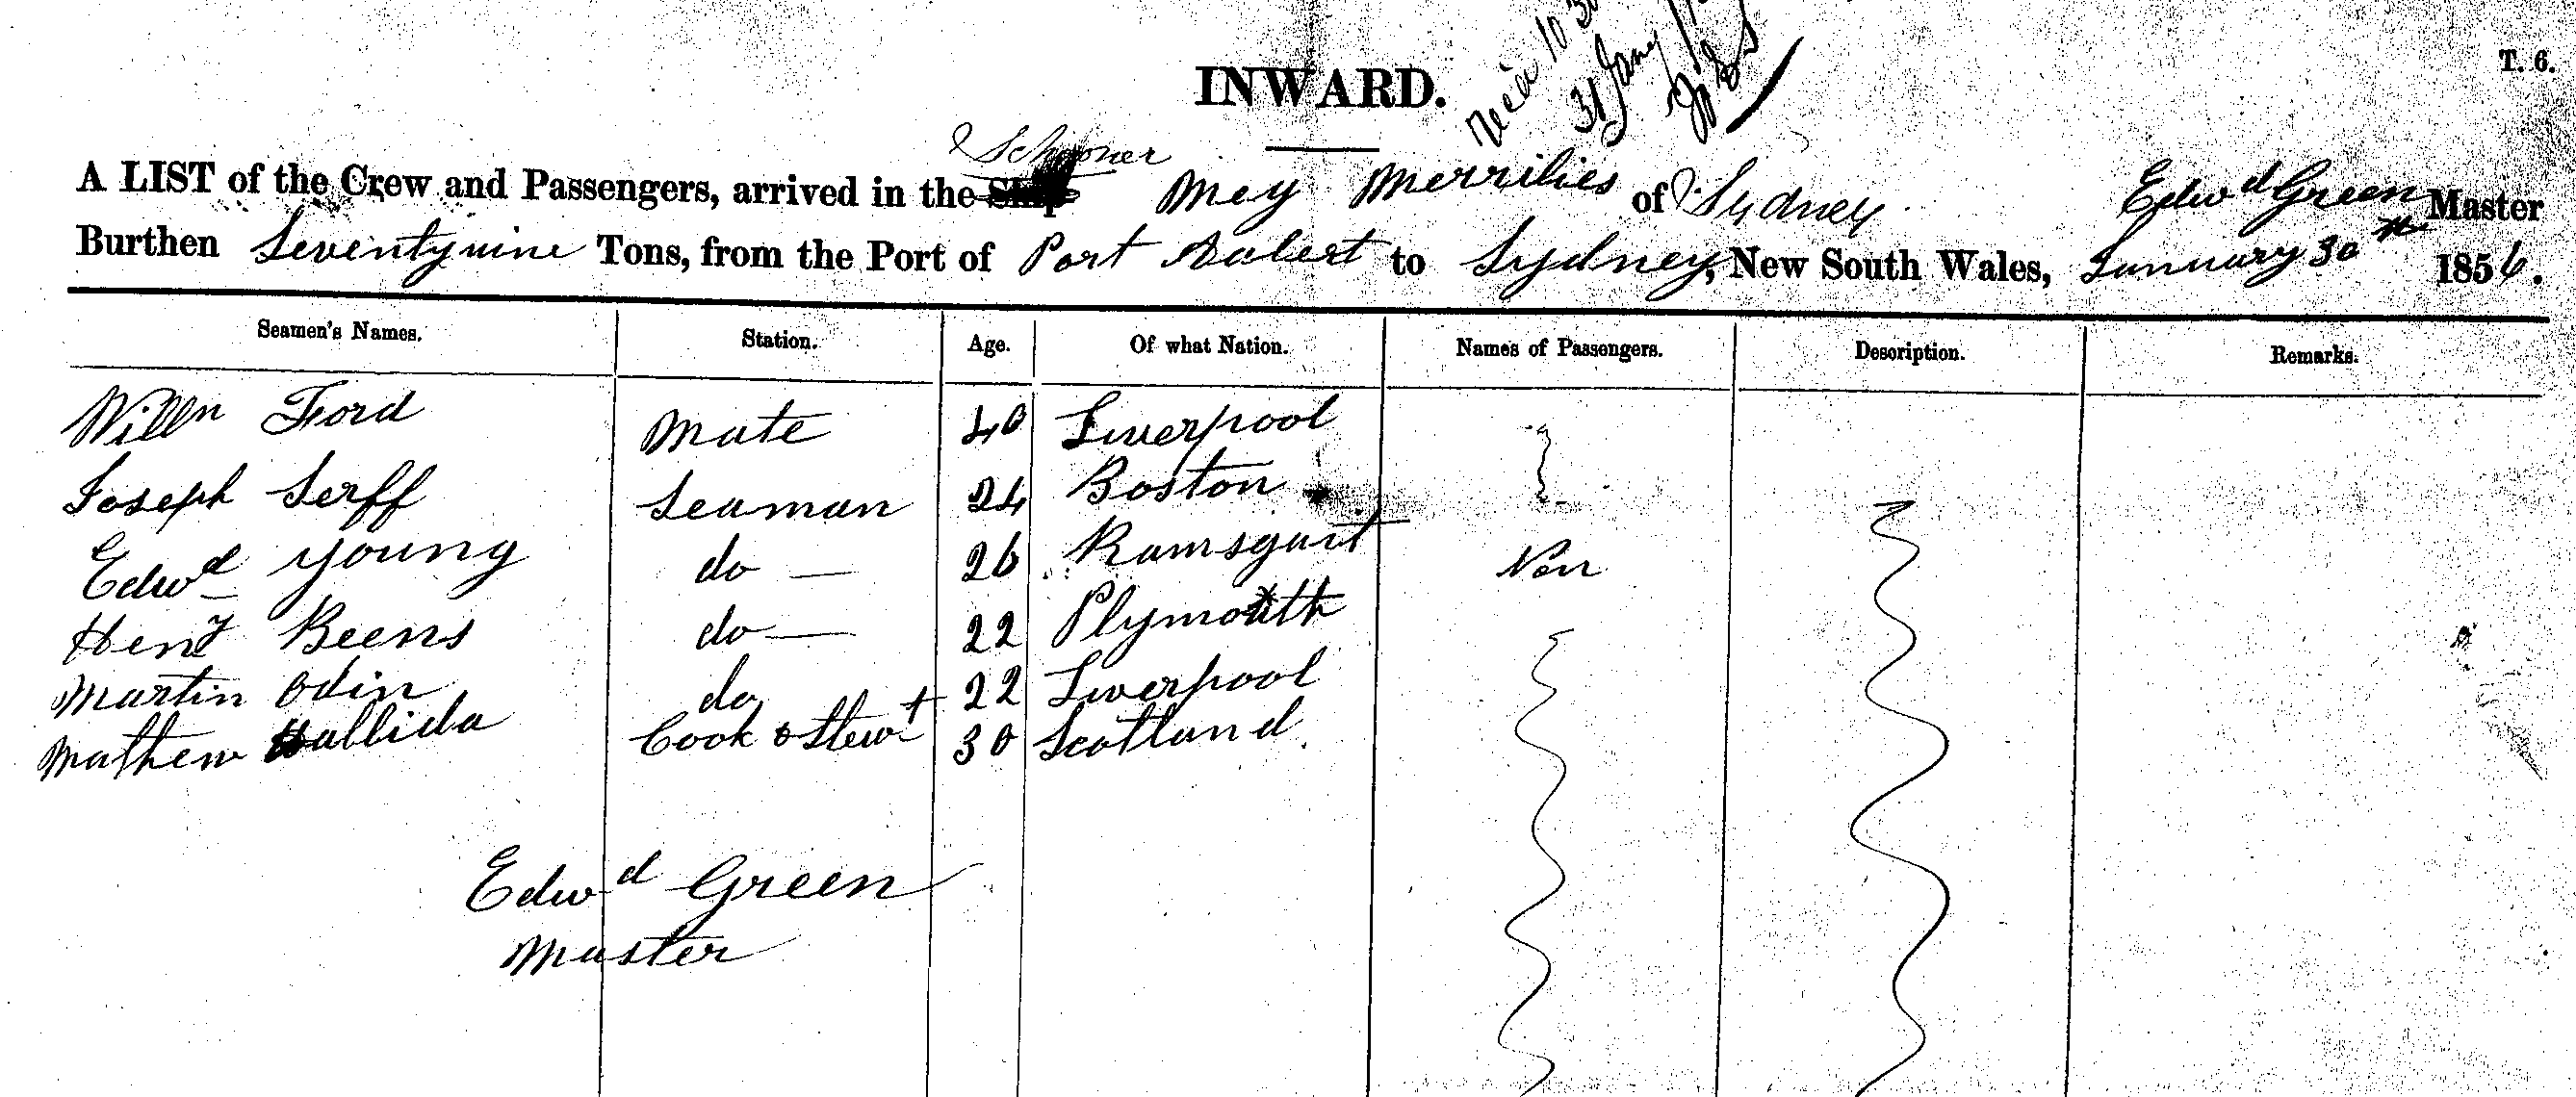 INWARD.
T. 6.
31 Jany
A LIST of the Crew and Passengers, arrived in the Ship Schooner Meg Merrilies of Sydney Edwd Green Master
Burthen Seventy nine Tons, from the Port of Port Aulert to Sydney, New South Wales, January 30th 1856.
Seamen's Names. Station. Age. Of what Nation. Names of Passengers. Description. Remarks.
Willm Ford Mate 40 Liverpool
Joseph Serff Seaman 24 Boston
Edwd Young do — 26 Ramsgait Non
Heny Beens do — 22 Plymouth
Martin Odin do 22 Liverpool
Mathew Hallida Cook & Stewt 30 Scotland
Edwd Green
Master